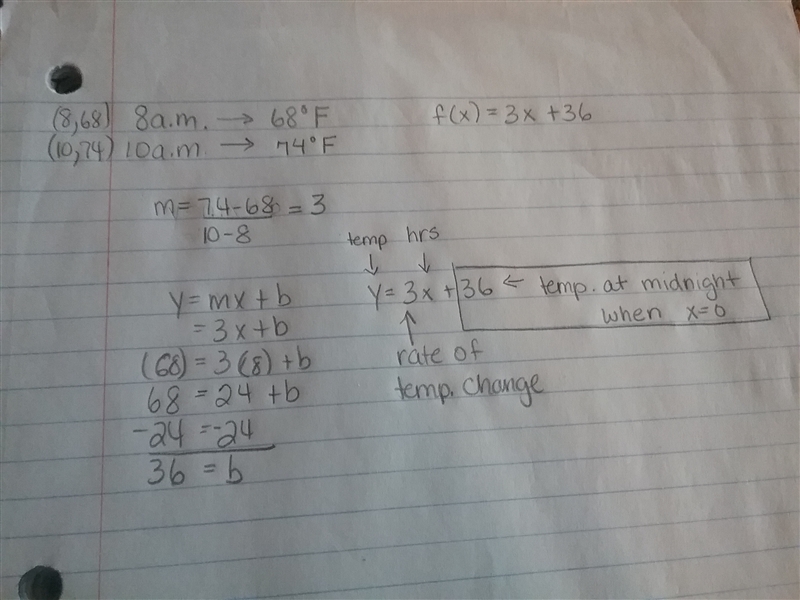 (8,68) 8a.m. → 68°F
(10,74) 10a.m. → 74°F
f(x) = 3x + 36
m = 74-68 = 3
10-8
y = mx + b
= 3x + b
(68) = 3(8) + b
68 = 24 + b
-24 = -24
36 = b
temp hrs
↓ ↓
y = 3x + 36 ← temp. at midnight
when x=0
↑
rate of
temp. change